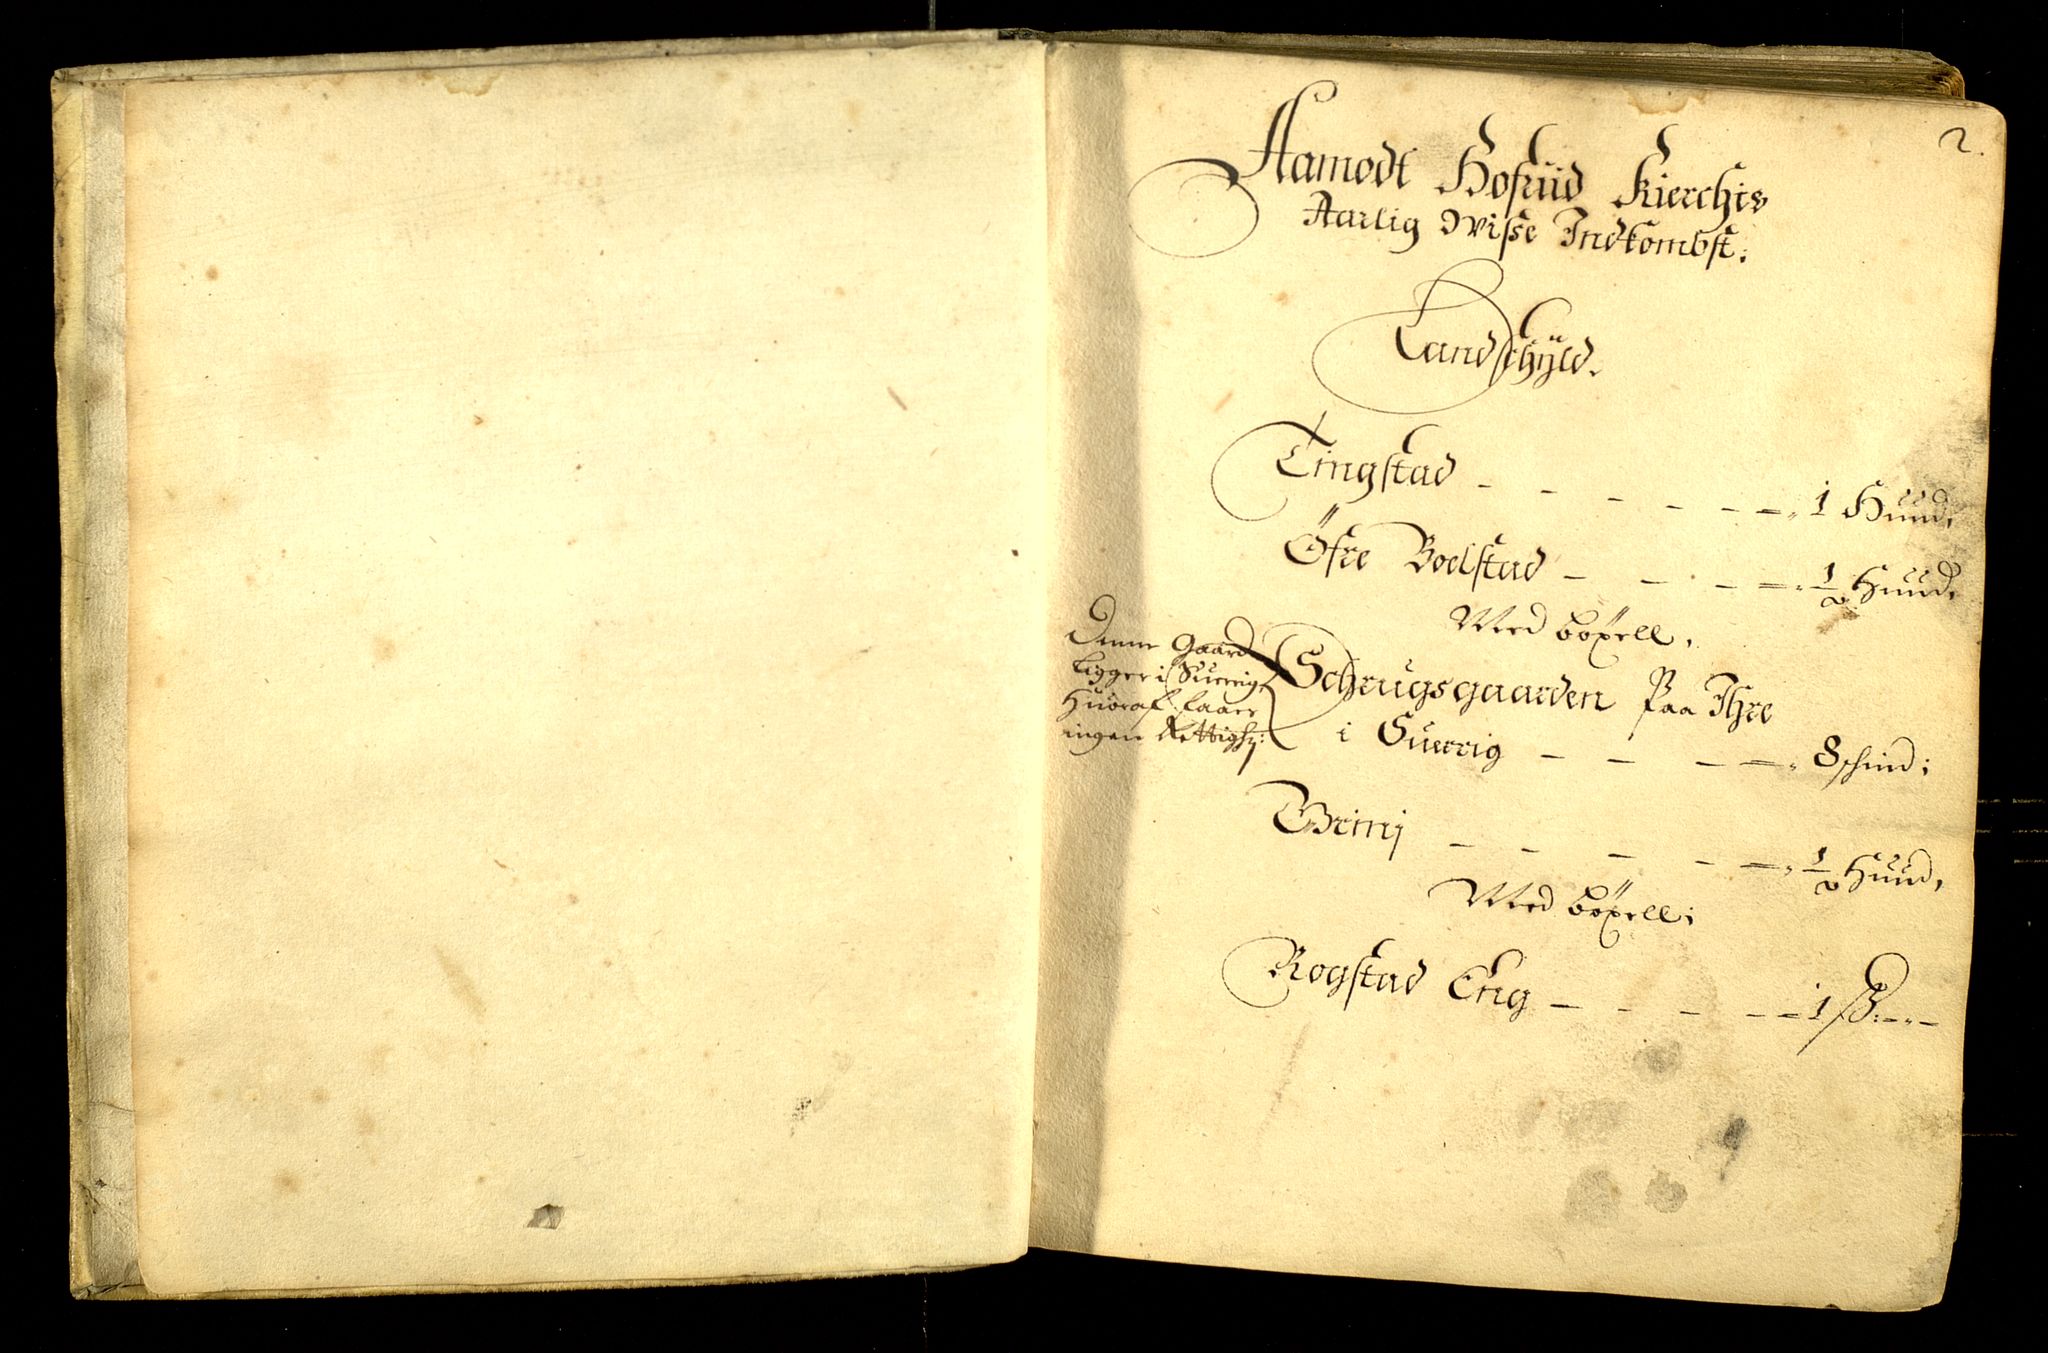 2.
Aamodt Hofuid Kierchis
Aarlig Wisse Indkombst:
Landschÿld.
Tingstad - - - - - - 1 Huud,
Öfre Boelstad - - - - 1/2 Huud,
Med böxell,
Denne Gaard
ligger i Suerrig,
Huoraf faaes
ingen Rettigh:
Schrugsgaarden paa Ihre
i Suerrig - - - - 8 schind:
Grinj - - - - - 1/2 Huud,
Med böxell:
Rogstad Eng - - - - - 1 ß:--